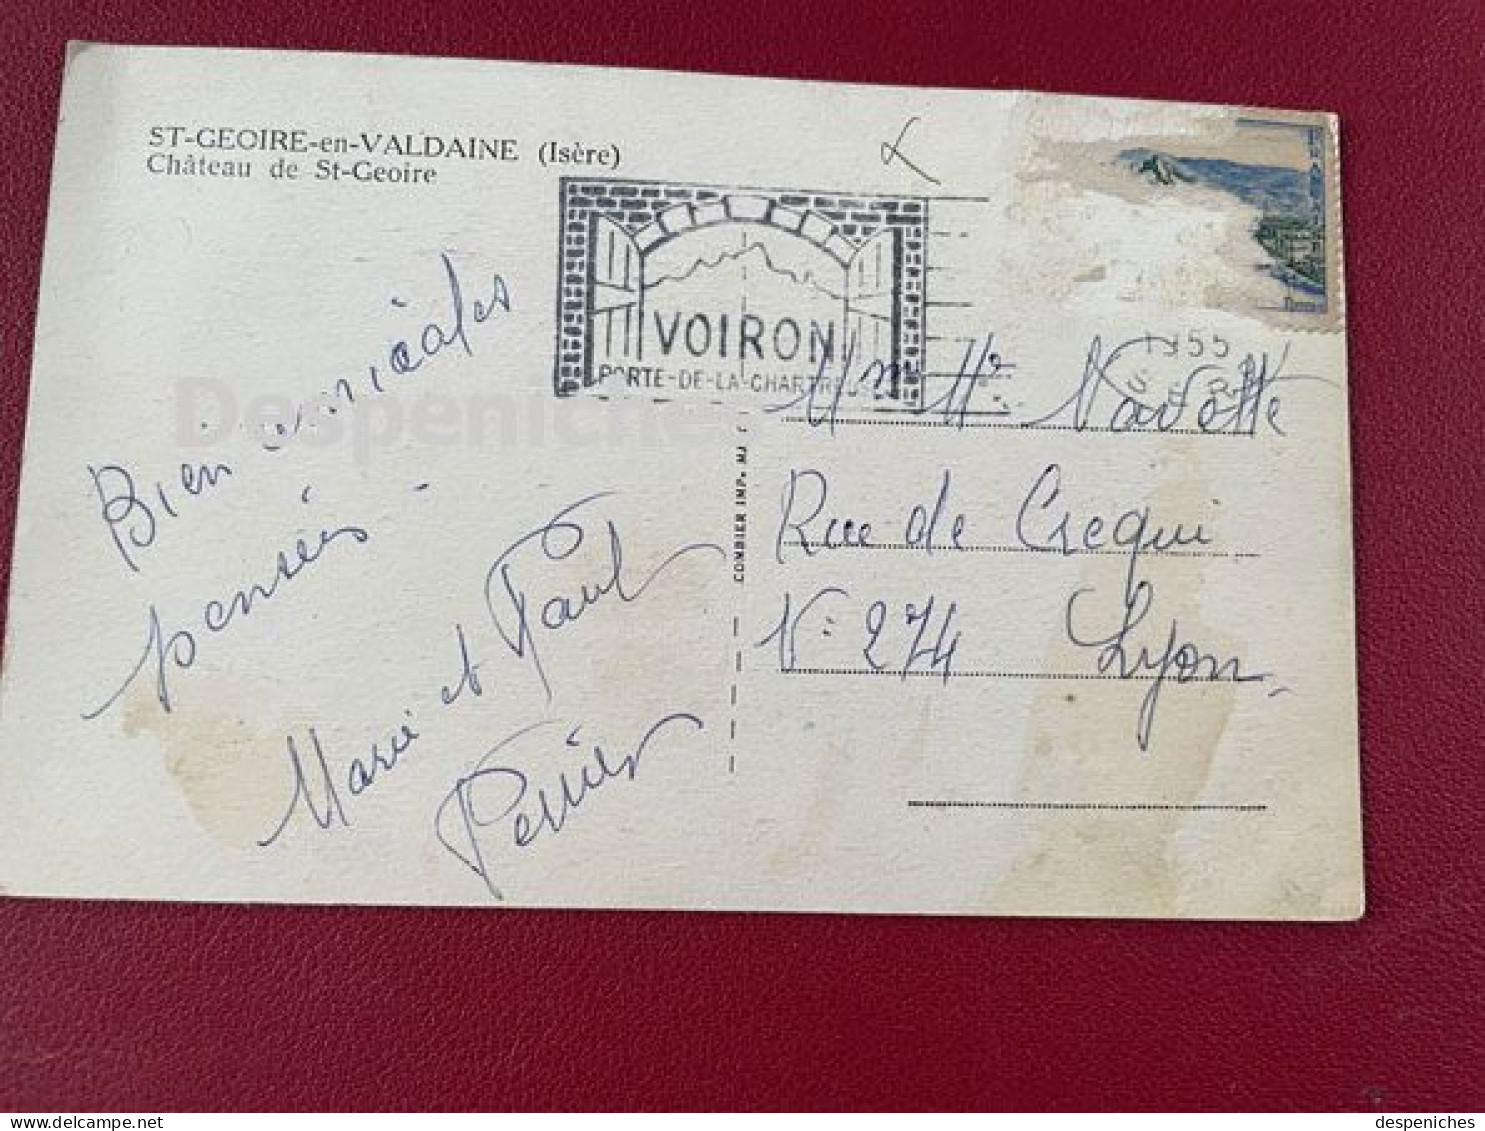 ST-GEOIRE-en-VALDAINE (Isère)
Château de St-Geoire
VOIRON
PORTE-DE-LA-CHARTREUSE
1955
Bien amicales
pensées -
Marie et Paul
Perrier
COMBIER IMP. MA
Mme Mr Navette
Rue de Crequi
N: 274 Lyon
Despeniches
despeniches